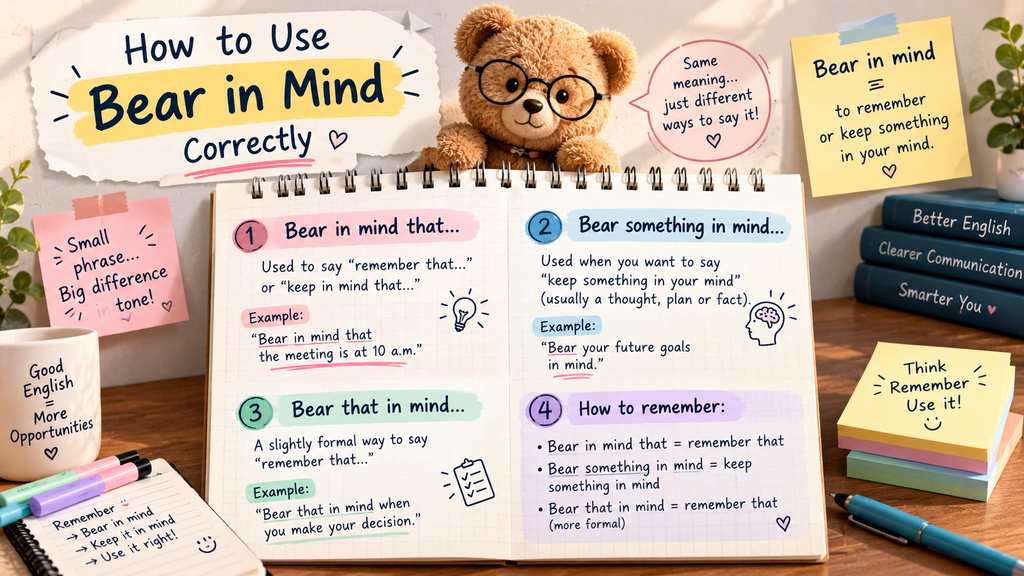 How to Use
Bear in Mind
Correctly
Same
meaning...
just different
ways to say it!
Bear in mind
=
to remember
or keep something
in your mind.
Small
phrase...
Big difference
in tone!
1 Bear in mind that...
Used to say “remember that...”
or “keep in mind that...”
Example:
“Bear in mind that
the meeting is at 10 a.m.”
2 Bear something in mind...
Used when you want to say
“keep something in your mind”
(usually a thought, plan or fact).
Example:
“Bear your future goals
in mind.”
3 Bear that in mind...
A slightly formal way to say
“remember that...”
Example:
“Bear that in mind when
you make your decision.”
4 How to remember:
• Bear in mind that = remember that
• Bear something in mind = keep
something in mind
• Bear that in mind = remember that
(more formal)
Better English
Clearer Communication
Smarter You
Good
English
=
More
Opportunities
Think
Remember
Use it!
Remember
→ Bear in mind
→ Keep it in mind
→ Use it right!